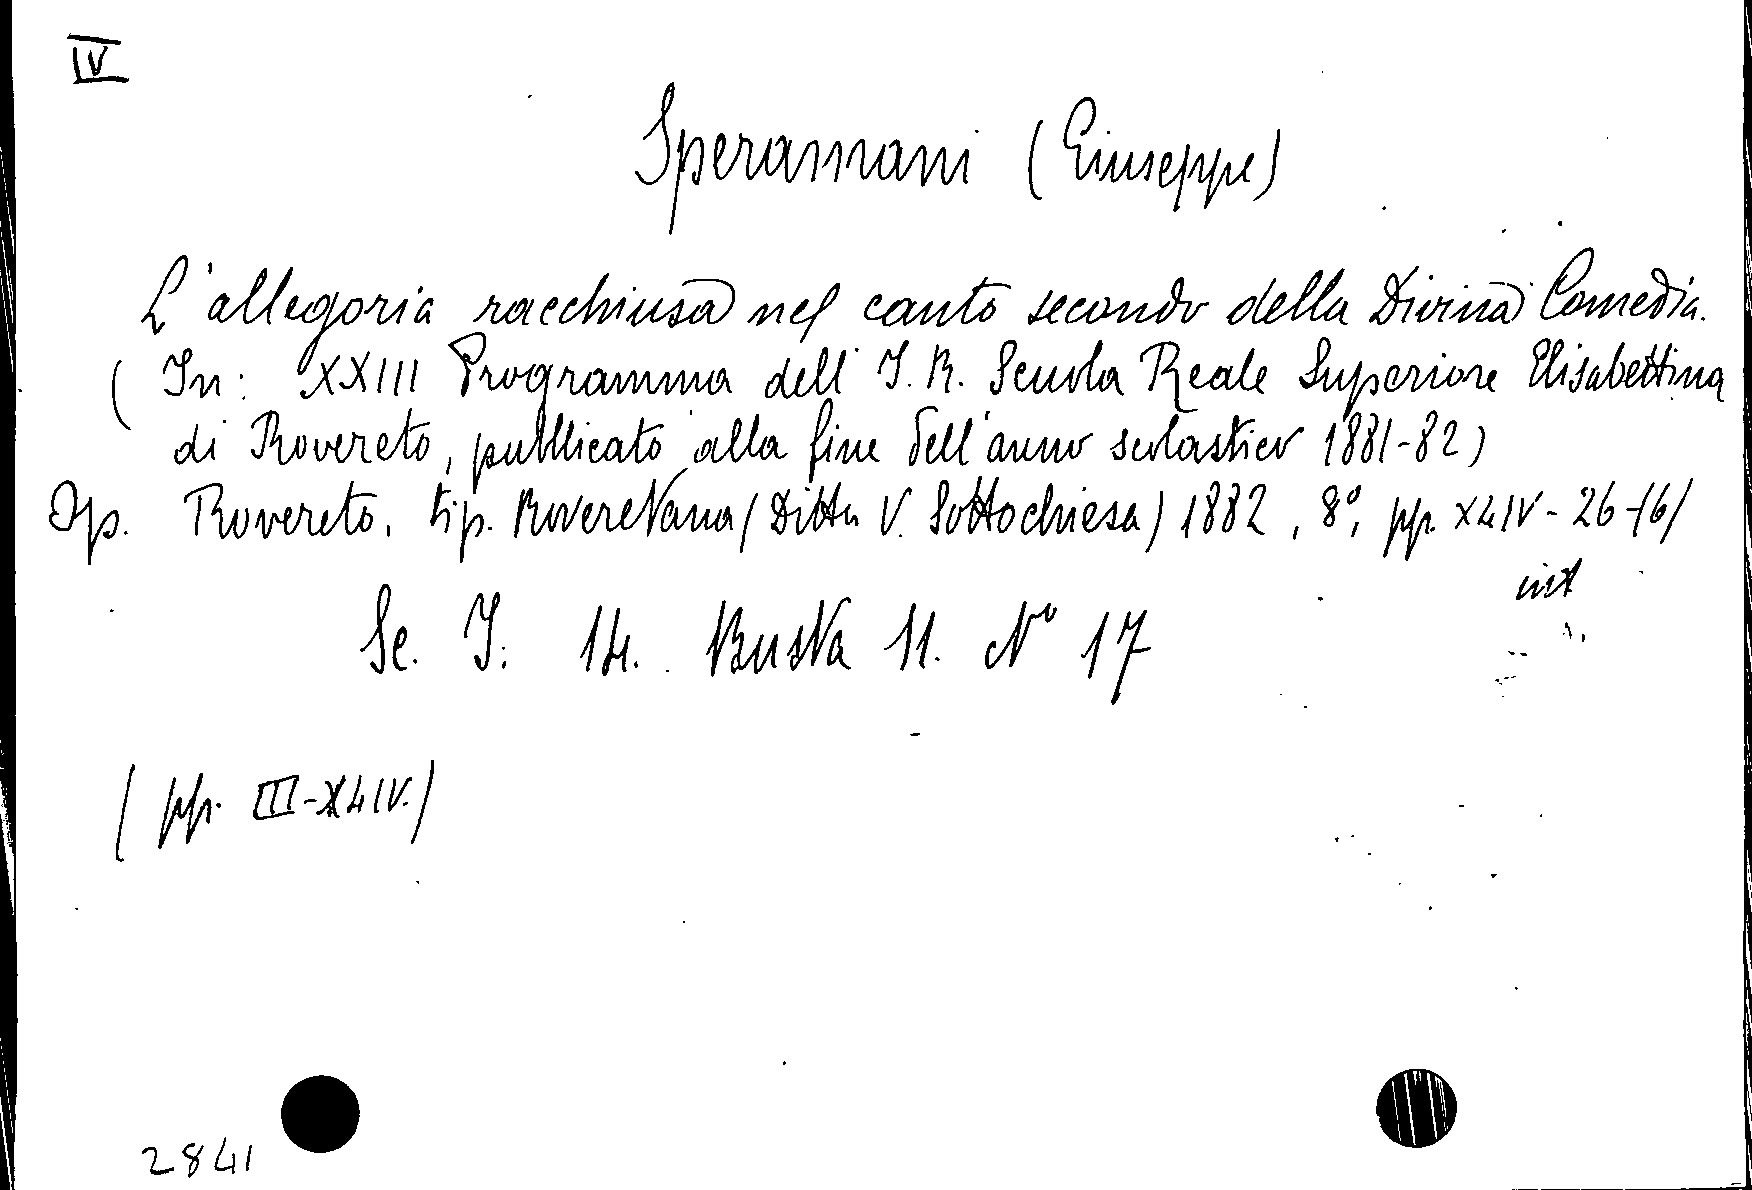 IV
Speramani (Giuseppe)
L'allegoria racchiusa nel canto secondo della Divina Comedia.
(In: XXIII Programma dell' I. R. Scuola Reale Superiore Elisabettina
di Rovereto, pubblicato alla fine dell'anno scolastico 1881-82)
Op. Rovereto, tip. Roveretana (Ditta V. Sottochiesa) 1882, 8°, pp. XLIV-26-(6)
int
Se. I. 14. Busta 11. N° 17
(pp. III-XLIV.)
2841